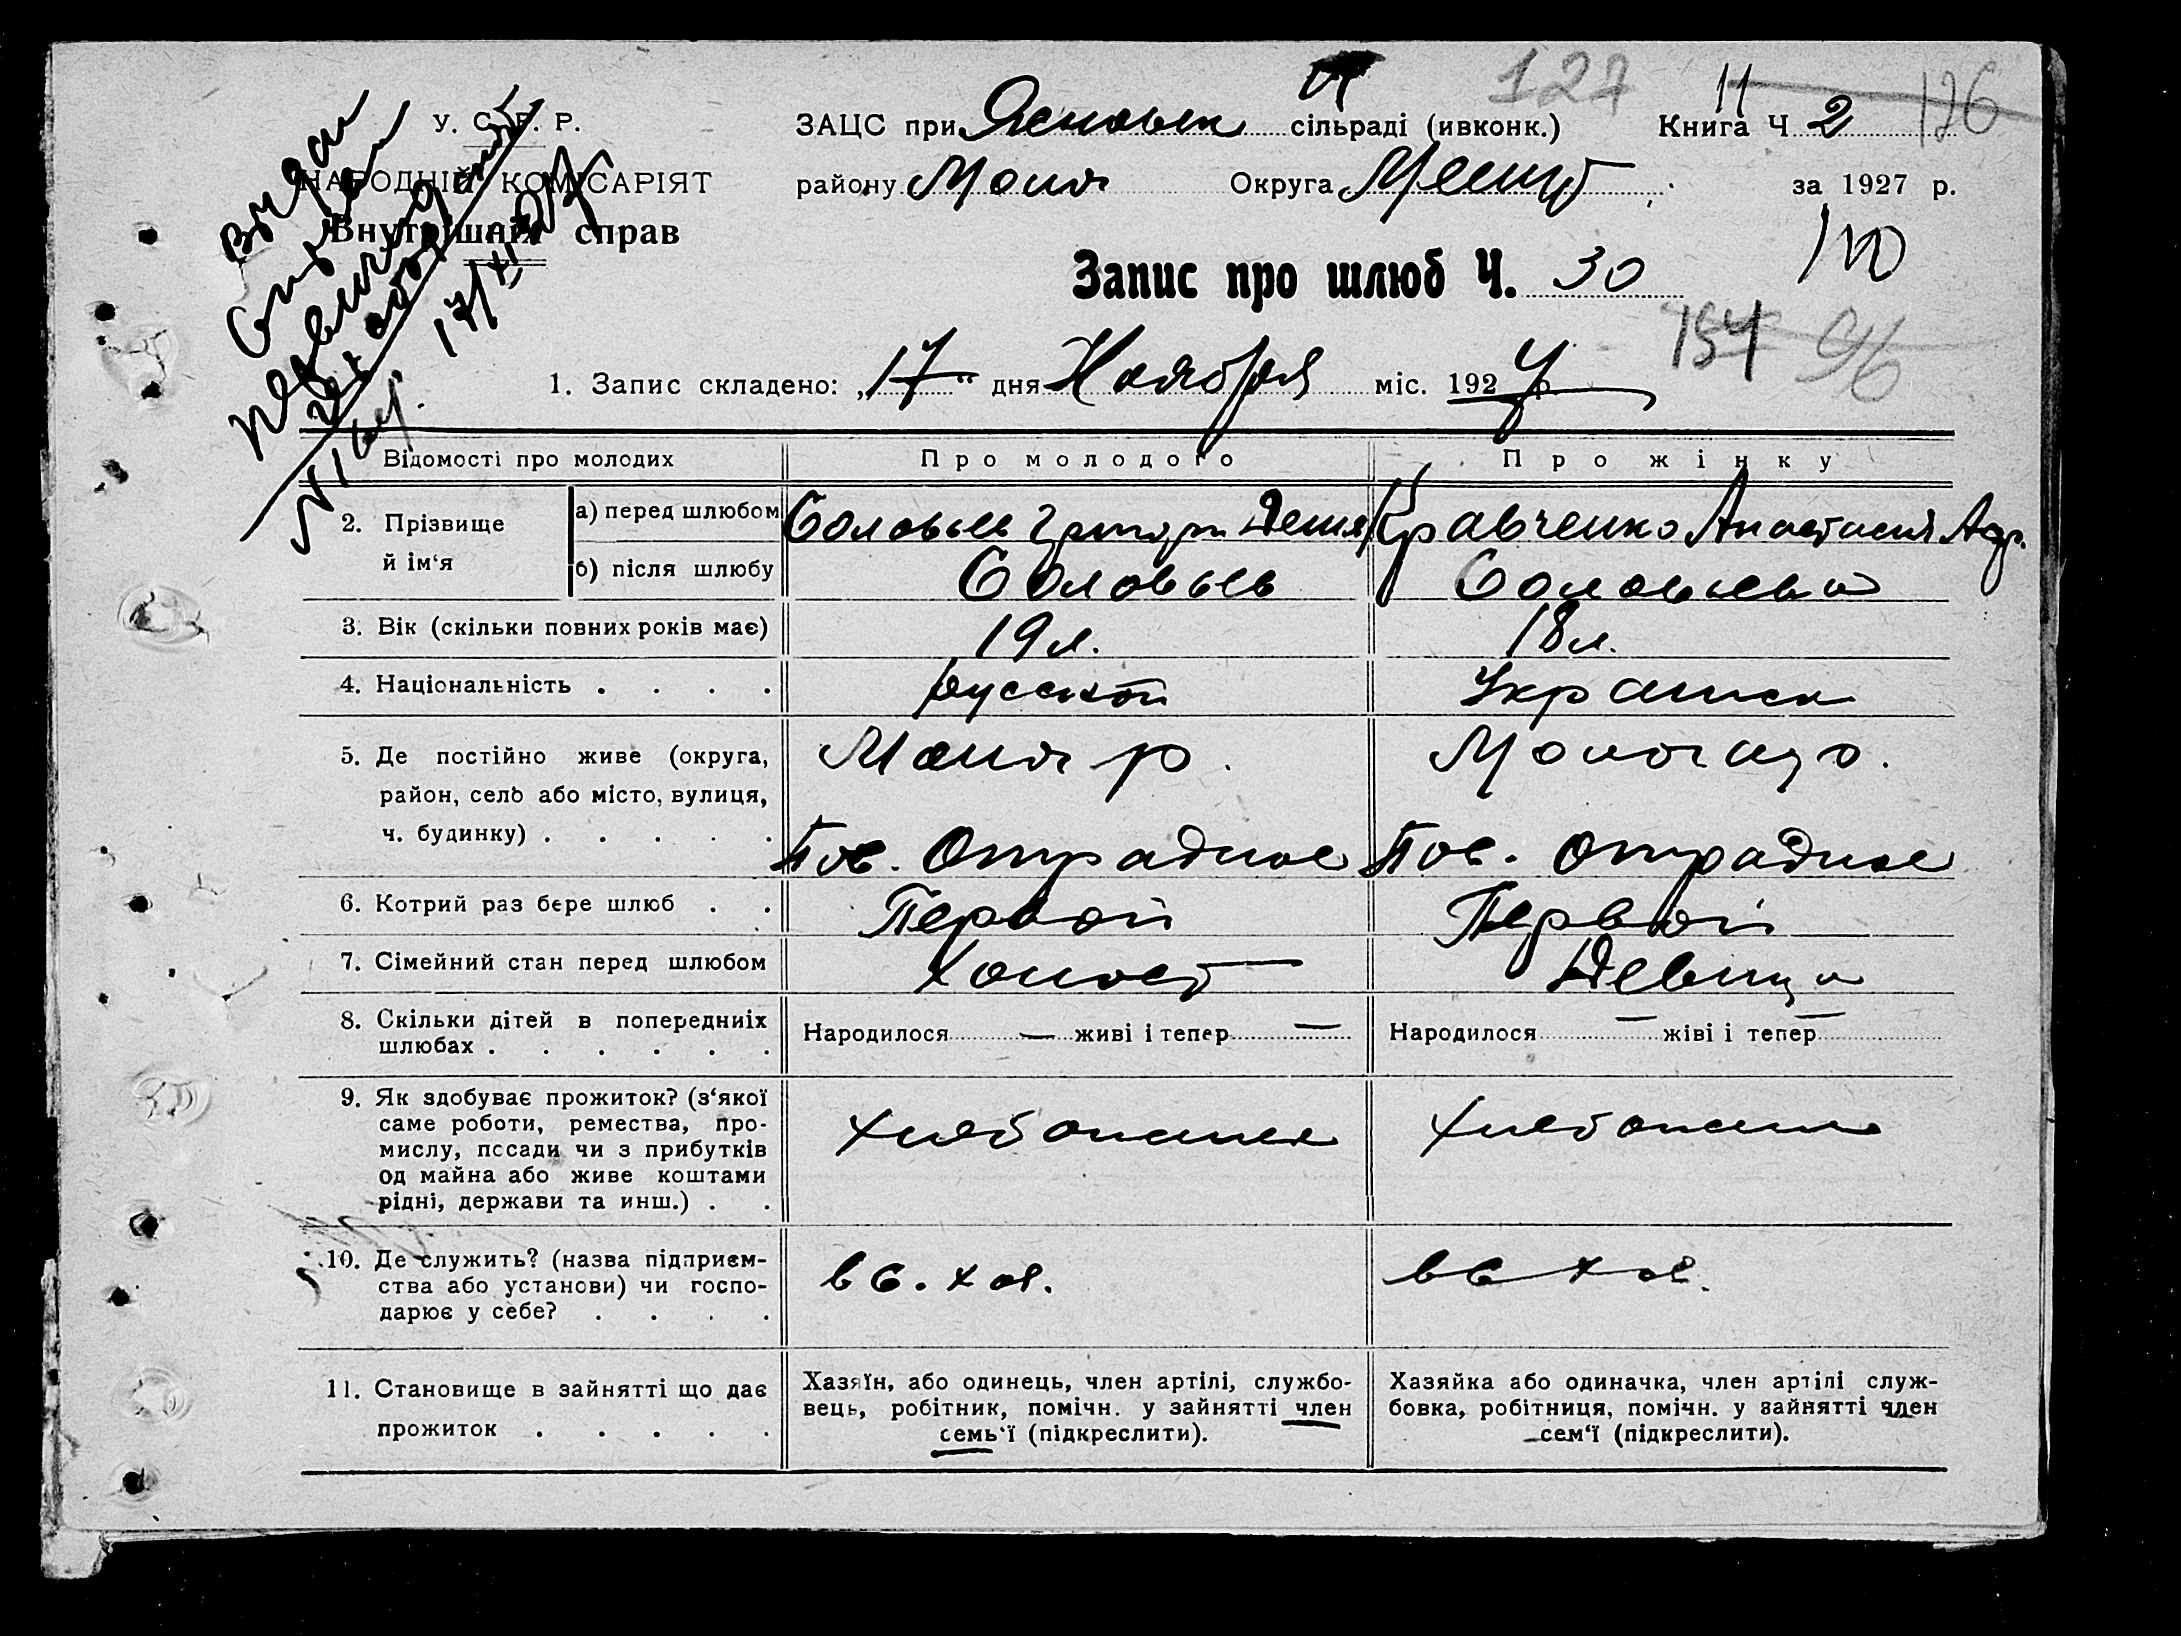 127 11 126
У. С. Р. Р.
ЗАЦС при Ясновск сільраді (ивконк.) Книга Ч 2
НАРОДНІЙ КОМІСАРІЯТ
району Молоч Округа за 1927 р.
Внутрішніх справ
110
Запис про шлюб Ч. 30
154 96
1. Запис складено: „17“ дня Ноября міс. 1927 р.
Відомості про молодих Про молодого Про жінку
2. Прізвище й ім‘я
а) перед шлюбом Соловьев Григори Кравченко Анастасия Андр.
б) після шлюбу Соловьев Соловьева
3. Вік (скільки повних років має) 19 л. 18 л.
4. Національність . . . . русской Украинск
5. Де постійно живе (округа, Молоч р.
район, село або місто, вулиця,
ч. будинку) . . . . . Пос. Отрадное Пос. Отрадное
6. Котрий раз бере шлюб . . Первой Первой
7. Сімейний стан перед шлюбом Холост Девица
8. Скільки дітей в попередниіх
шлюбах . . . . . .
Народилося — живі і тепер — Народилося — жіві і тепер —
9. Як здобуває прожиток? (з‘якої
саме роботи, ремества, про-
мислу, посади чи з прибутків
од майна або живе коштами
рідні, держави та инш.) . .
хлебопашец хлебопаш
10. Де служить? (назва підприєм-
ства або установи) чи госпо-
дарює у себе? . . . .
в с. хоз. в с хоз.
11. Становище в зайнятті що дає
прожиток . . . . .
Хазяїн, або одинець, член артілі, службо-
вець, робітник, помічн. у зайнятті член
семь‘ї (підкреслити).
Хазяйка або одиначка, член артілі служ-
бовка, робітниця, помічн. у зайнятті член
сем‘ї (підкреслити).